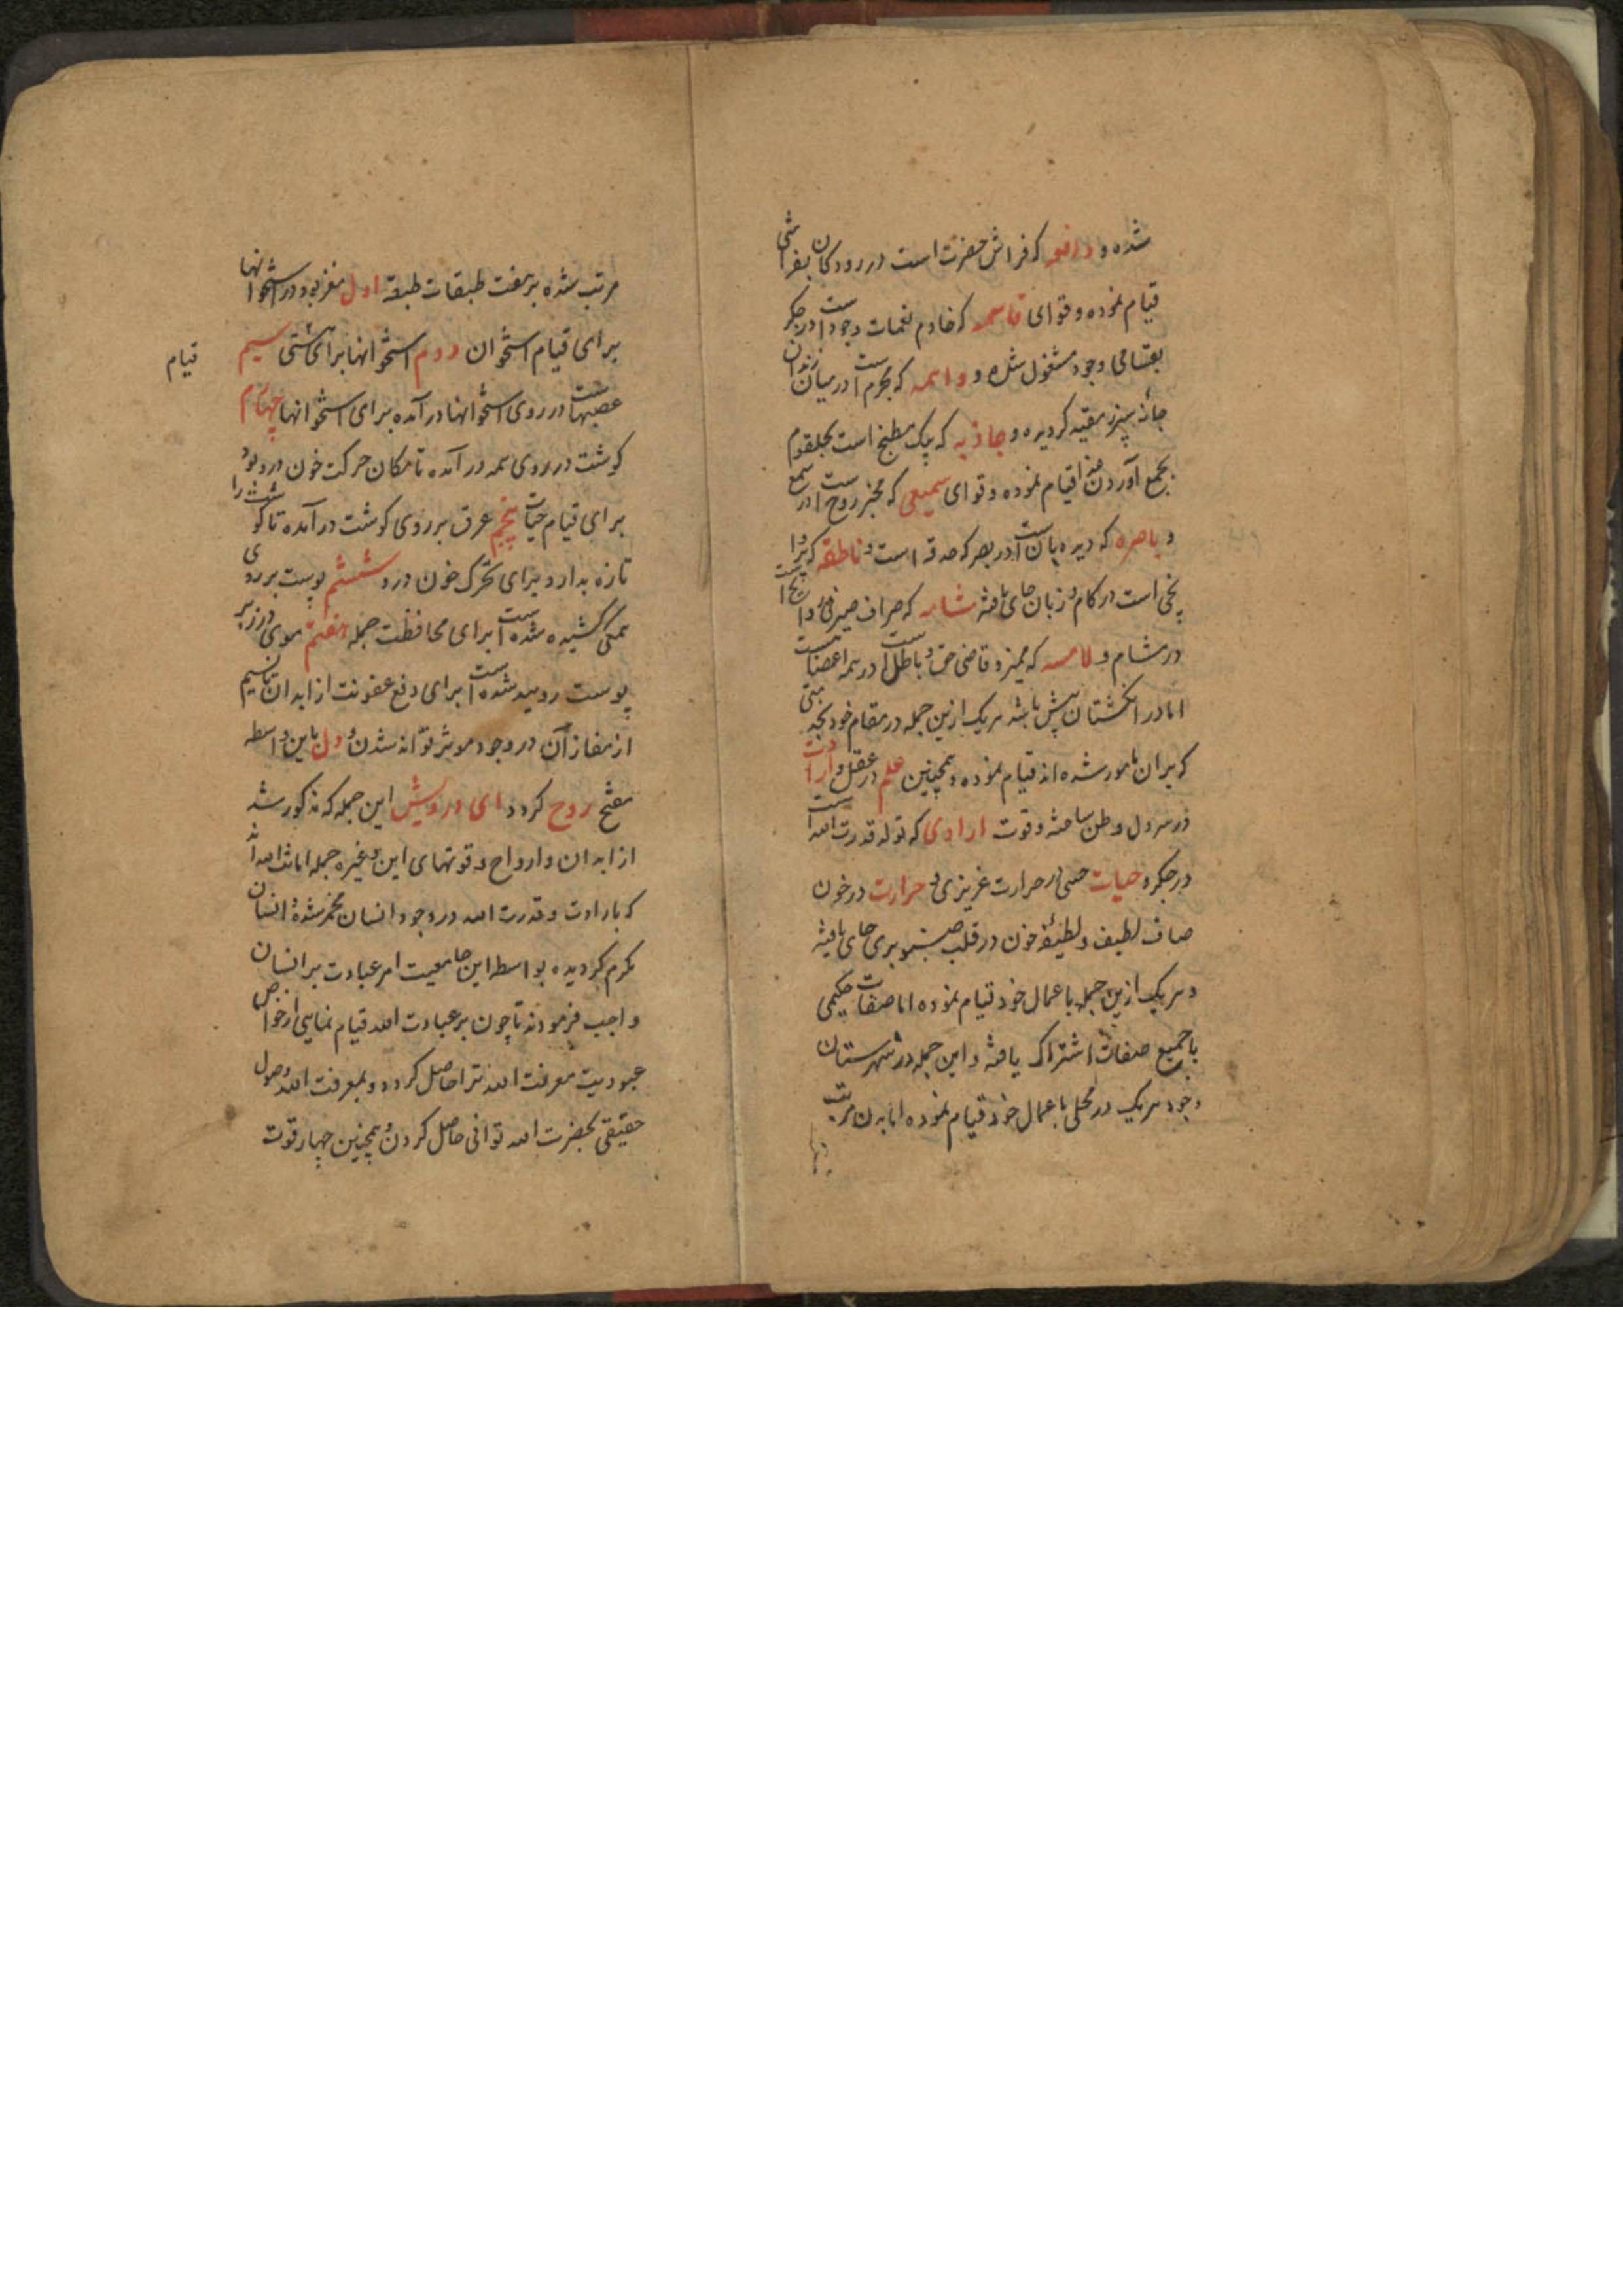 شده و دافعه که فراش حضرت است در رودکان بفراشی
قیام نموده و قوای قاسمه که خادم نغمات وجود است در جکر
بقسامی وجود مشغول شده و واهمه که مجرم است در میان زندان
خانه سپرز مقید کردیده و جاذبه که پیک مطبخ است بحلقوم
بجمع آوردن قیام نموده و قوای سمیعی که مخبر روح است در سمع
و باصره که دیده بان است در بصر که حدقه است و ناطقه که
است در کام و زبان جای یافته شامه که صراف
در مشام و لامسه که ممیز و قاضی حق و باطل است در همه اعضاست
اما در انکشتان پیش باشد هریک ازین جمله در مقام خود بخدمتی
که بران مامور شده اند قیام نموده و همچنین علم در عقل و ارادت
در سر دل وطن ساخته و قوت ارادی که تولد قدرت الله است
در جکر و حیات حسی در حرارت غریزی و حرارت در خون
صاف لطیف و لطیفه خون در قلب صنوبری جای یافته
و هریک ازین جمله باعمال خود قیام نموده اما صفات حکیمی
با جمیع صفات اشتراک یافته و این جمله در شهرستان
وجود هریک در محلی باعمال خود قیام نموده اما بدن مرتب
مرتب شده بر هفت طبقات طبقه اول مغز بود در استخوانها
برای قیام استخوان دوم استخوانها برای هستی سیم
قیام
عصبهاست در روی استخوانها در آمده برای استخوانها چهارم
کوشت در روی همه در آمده تا مکان حرکت خون درو بود
برای قیام حیات پنجم عرق بر روی کوشت در آمده تا کوشت را
تازه بدارد و برای تحرک خون درو ششم پوست بر روی
همکی کشیده شده است برای محافظت جمله هفتم موی در زیر
پوست روییده شده است برای دفع عفونت از ابدان تا نسیم
از مفاز آن در وجود موثر تواند شدن و دل باین واسطه
مفتح روح کردد ای درویش این جمله که مذکور شد
از ابدان و ارواح و قوتهای این و غیره جمله امانت الله اند
که بارادت و قدرت الله در وجود انسان مخمر شده و انسان
مکرم کردیده بواسطه این جامعیت امر عبادت بر انسان
واجب فرمودند تا چون بر عبادت الله قیام نمایی از خواص
عبودیت معرفت الله ترا حاصل کردد و بمعرفت الله وصول
حقیقی بحضرت الله توانی حاصل کردن و همچنین چهار قوت